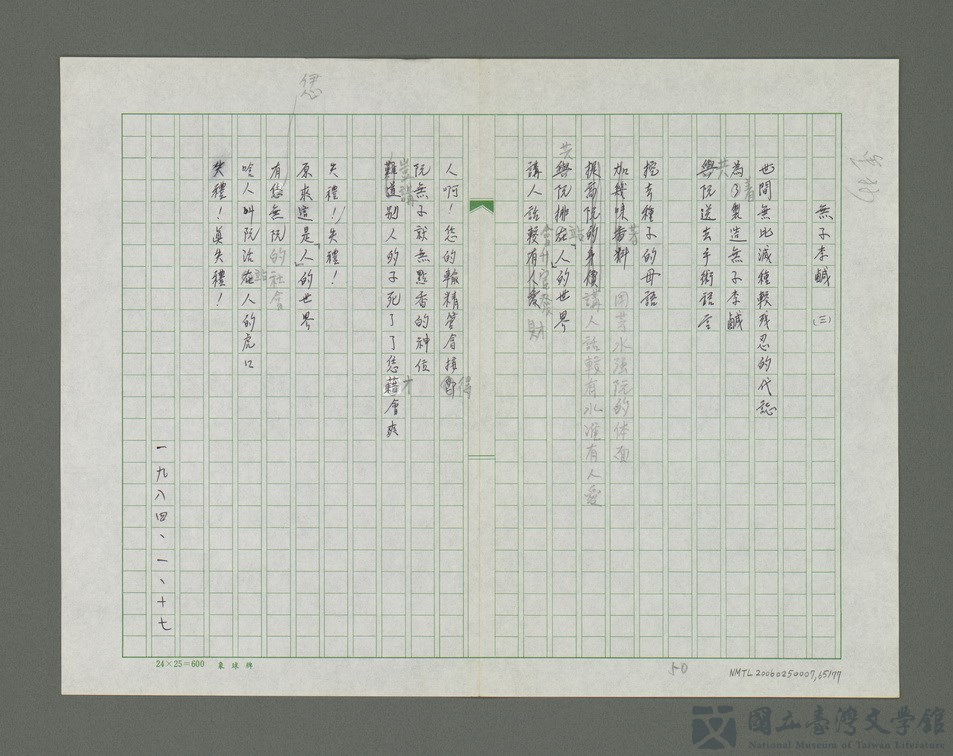 無子李鹹 (三)
世間無比滅種較殘忍的代誌
為著製造無子李鹹
共阮送去手術語言
挖去種子的母語
加幾味香料 因共水張阮的体面
提高阮的身價 講人話較有水准有人愛
共阮擺在「人」的世界
講人話較有人愛 會升官發財
人啊!您的輸精管會接
阮無子就無點香的神位
豈講別人的子死了了您才會爽
失禮!失禮!
原來這是「人」的世界
有您無阮的社會
阮站在人的虎口
失禮!真失禮!
一九八四、一、十七
您
24×25=600
50
NMTL20060250007,65/77
國立臺灣文學館
National Museum of Taiwan Literature